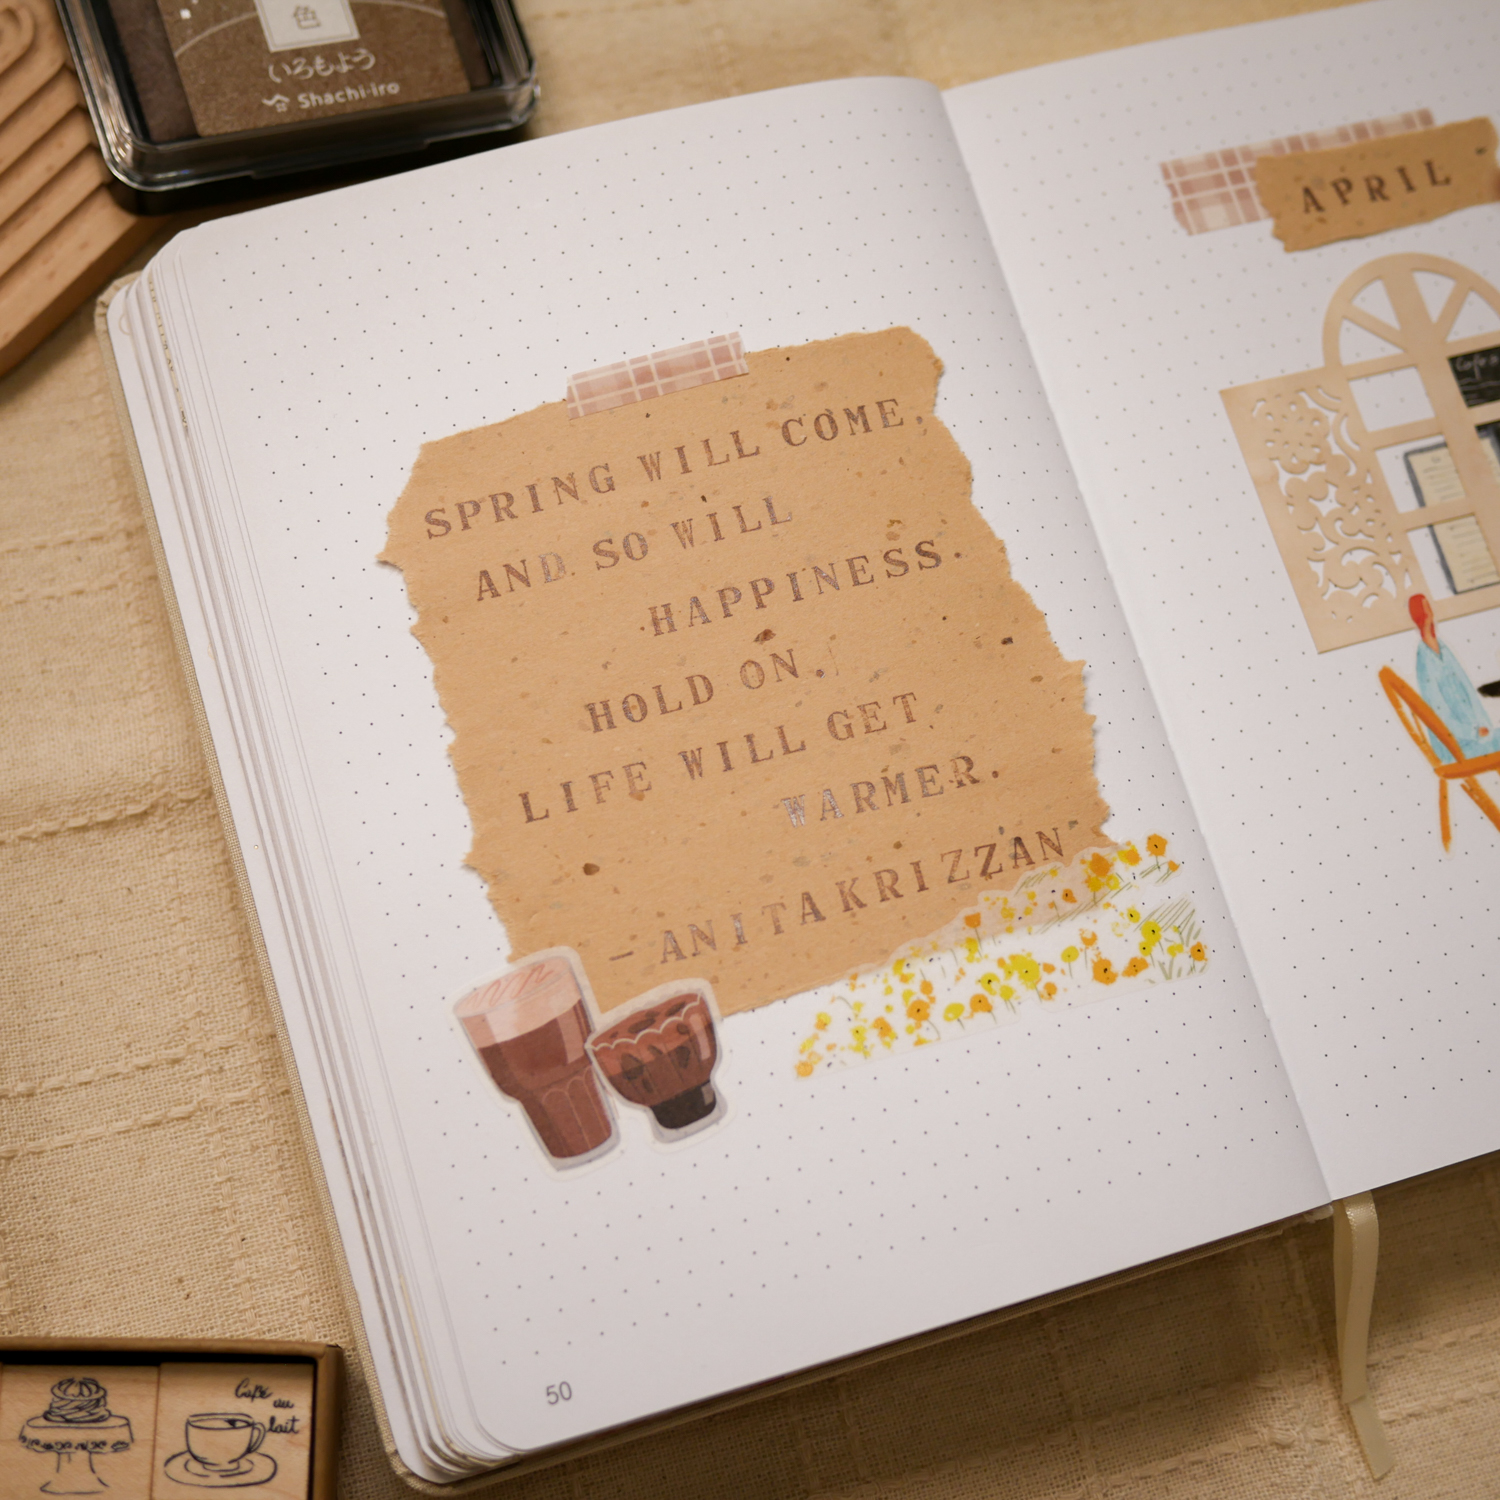 色
いろもよう
Shachi-iro
SPRING WILL COME,
AND SO WILL
HAPPINESS.
HOLD ON.
LIFE WILL GET
WARMER.
- ANITAKRIZZAN
50
APRIL
Café
au
lait